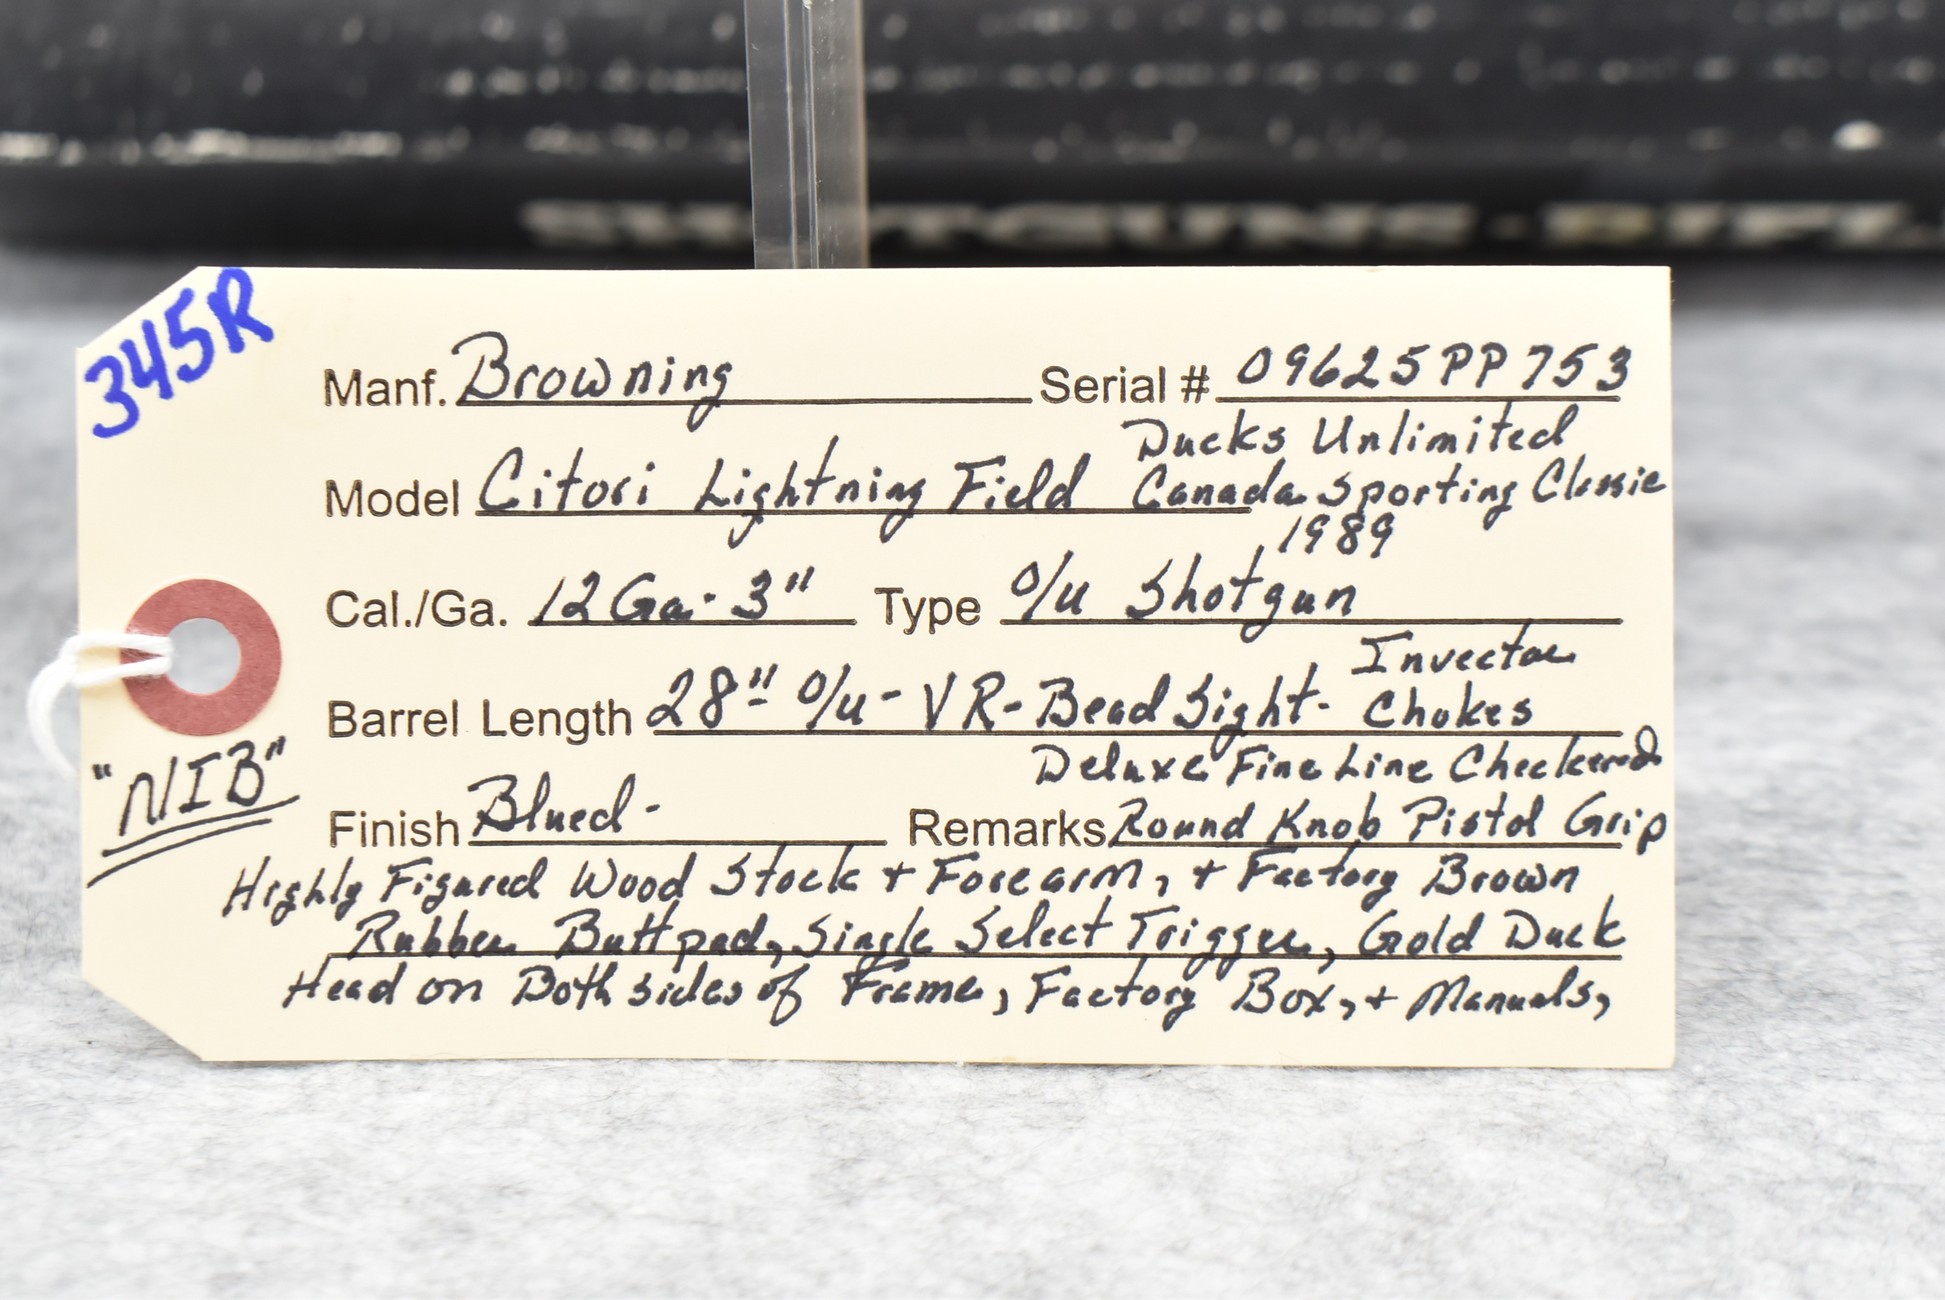 SHOTGUNS - RIFL
345R
Manf. Browning Serial # 09625PP753
Ducks Unlimited
Model Citori Lightning Field Canada Sporting Classic
1989
Cal./Ga. 12 Ga. 3" Type O/U Shotgun
Invector
Barrel Length 28" O/U - VR - Bead Sight - Chokes
Deluxe Fine Line Checkered
"NIB"
Finish Blued - Remarks Round Knob Pistol Grip
Highly Figured Wood Stock + Forearm, + Factory Brown
Rubber Buttpad, Single Select Trigger, Gold Duck
Head on Both sides of Frame, Factory Box, + Manuals,